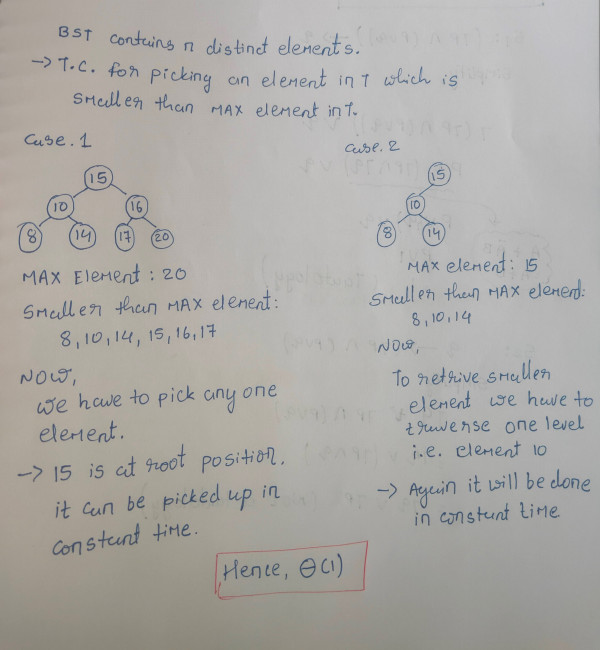 BST contains n distinct elements.
→ T.C. for picking an element in T which is
smaller than MAX element in T.
Case. 1
15
10 16
8 14 17 20
MAX Element : 20
Smaller than MAX element:
8, 10, 14, 15, 16, 17
NOW,
we have to pick any one
element.
→ 15 is at root position.
it can be picked up in
constant time.
Case. 2
15
10
8 14
MAX element: 15
Smaller than MAX element:
8, 10, 14
NOW,
To retrive smaller
element we have to
traverse one level
i.e. element 10
→ Again it will be done
in constant time
Hence, Θ(1)